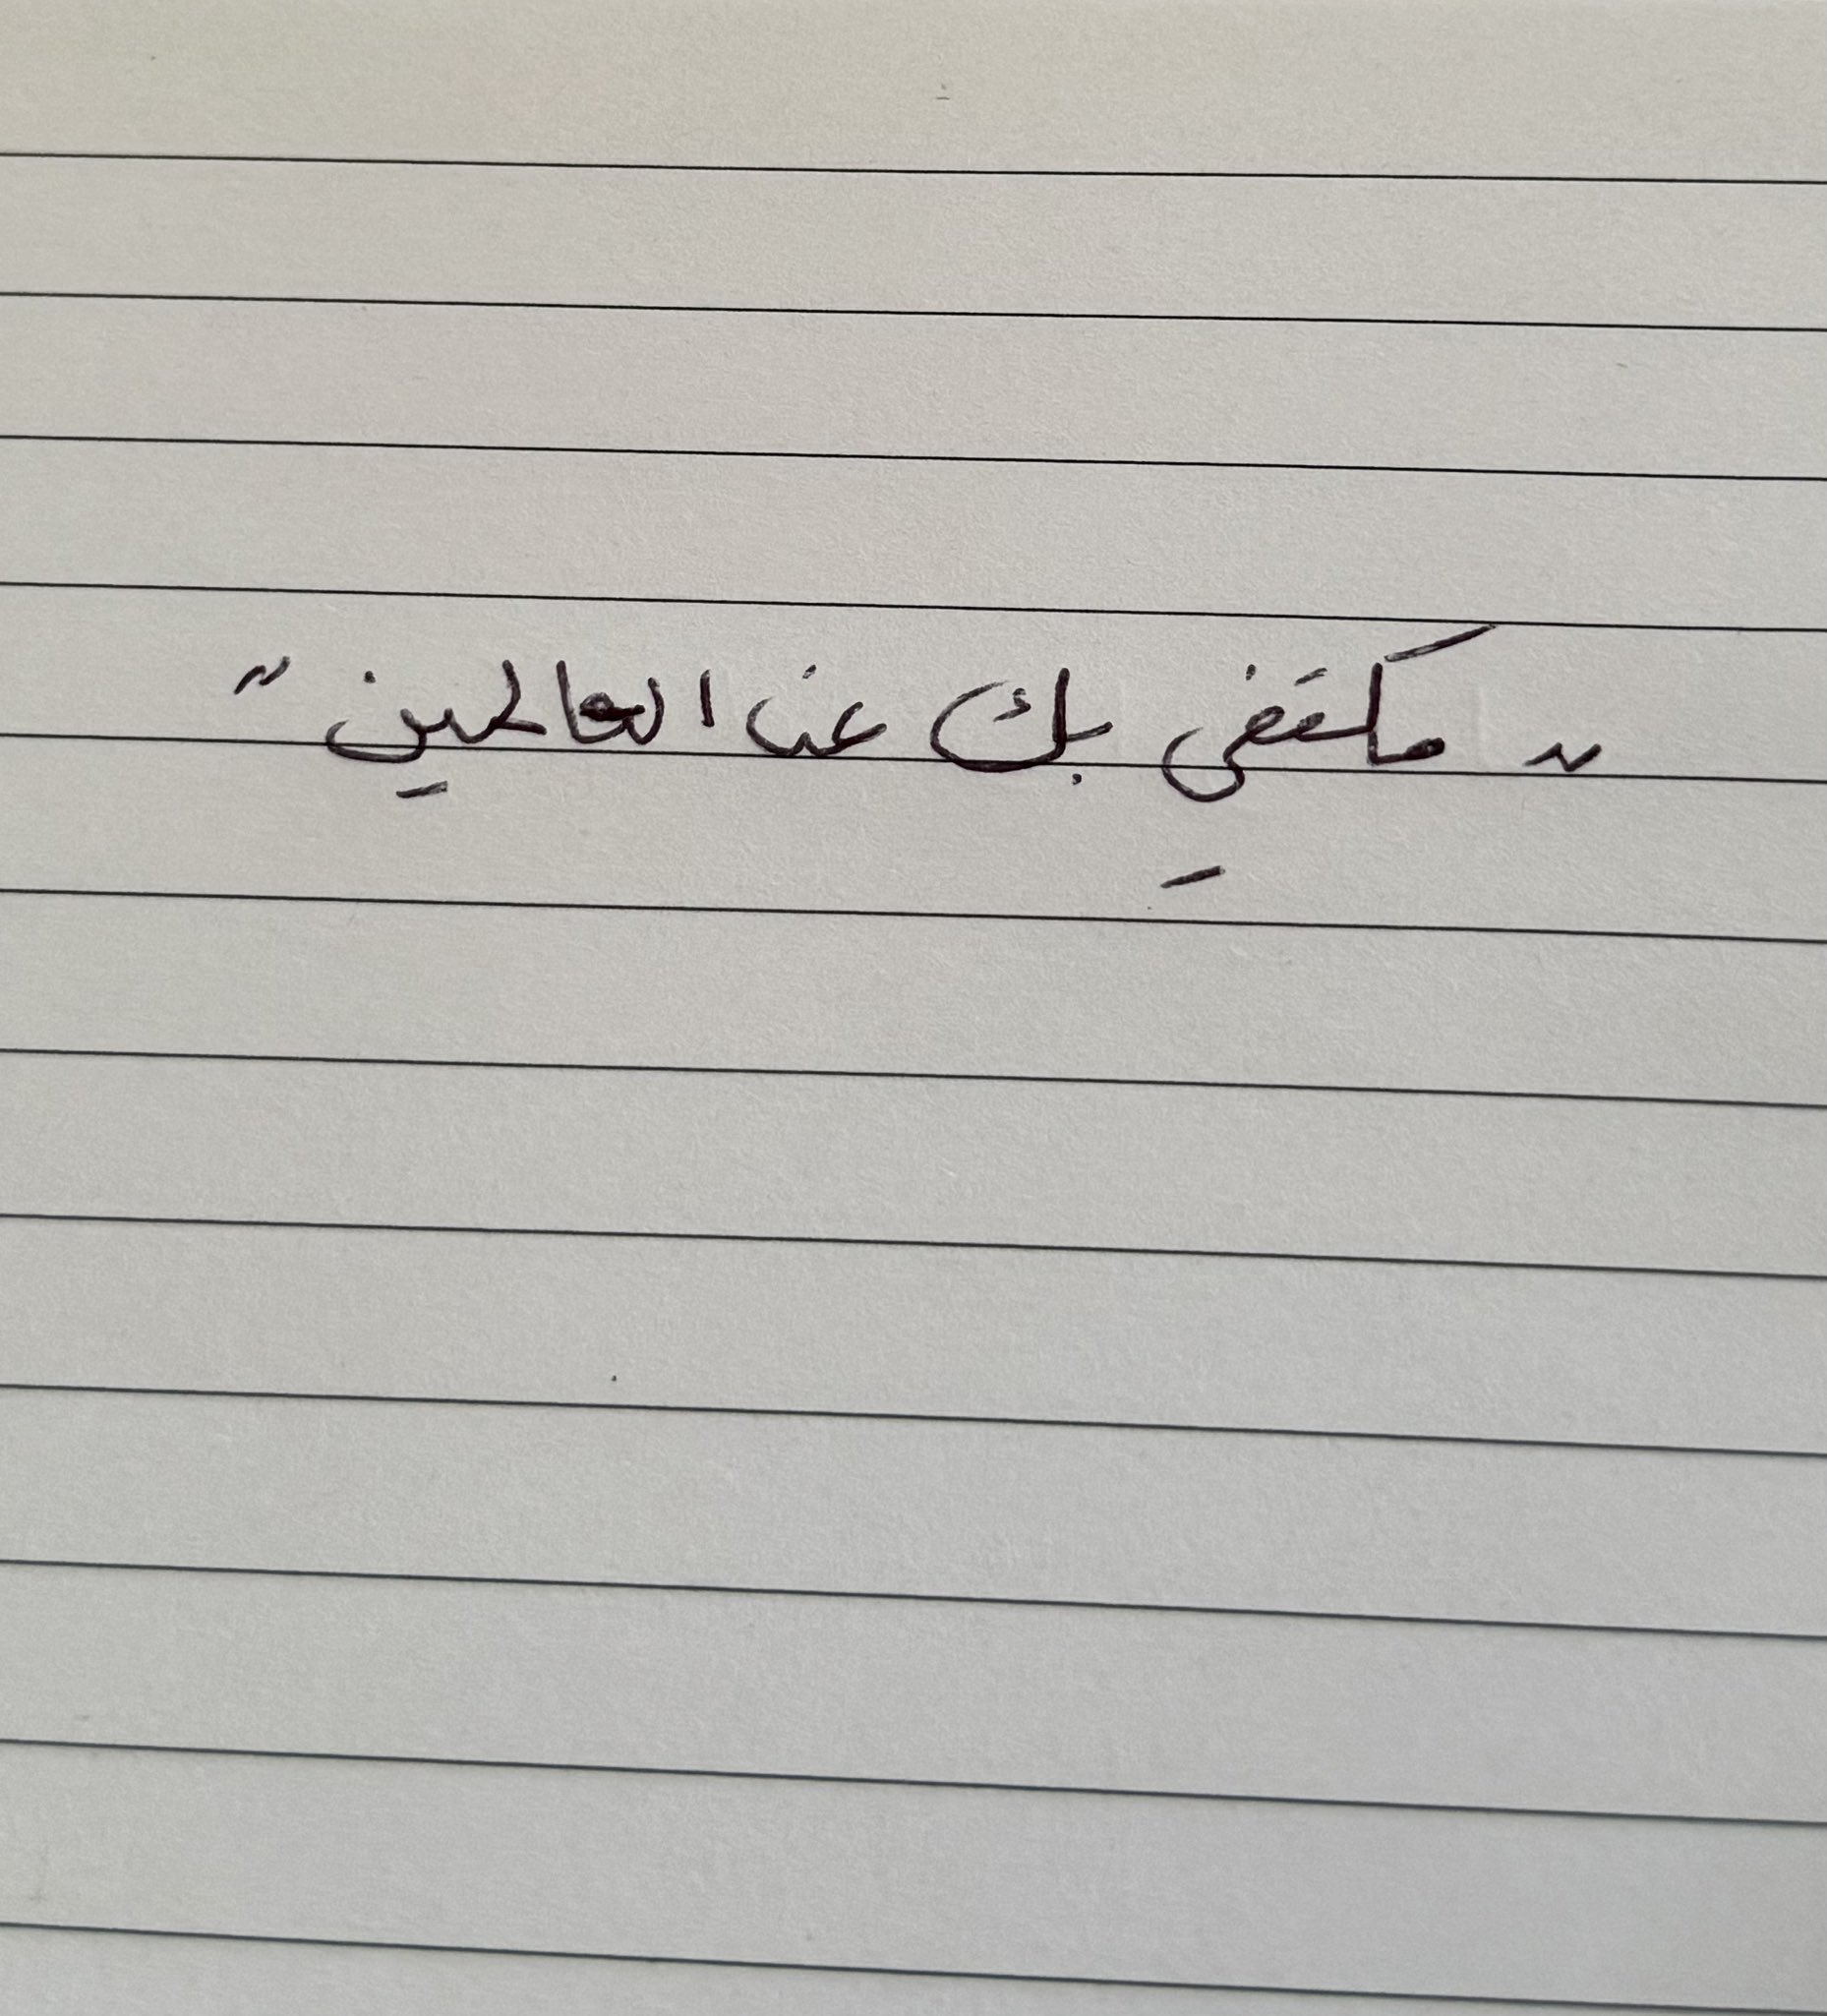 "مكتفي بك عن العالمين"